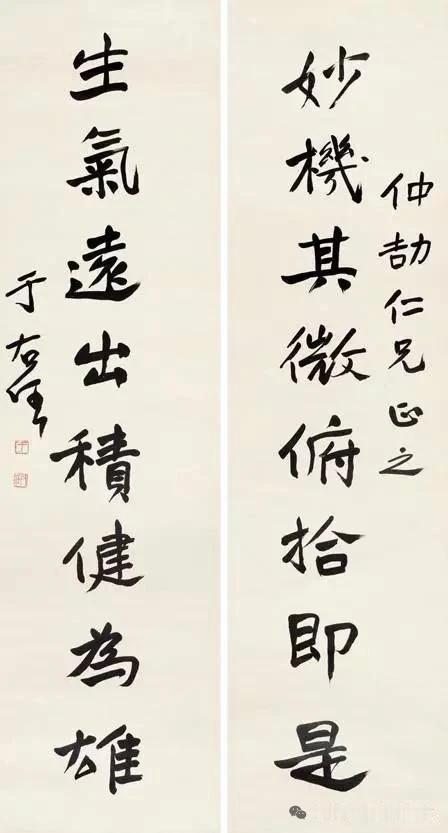 仲劼仁兄正之
妙機其微俯拾即是
生氣遠出積健為雄
于右任